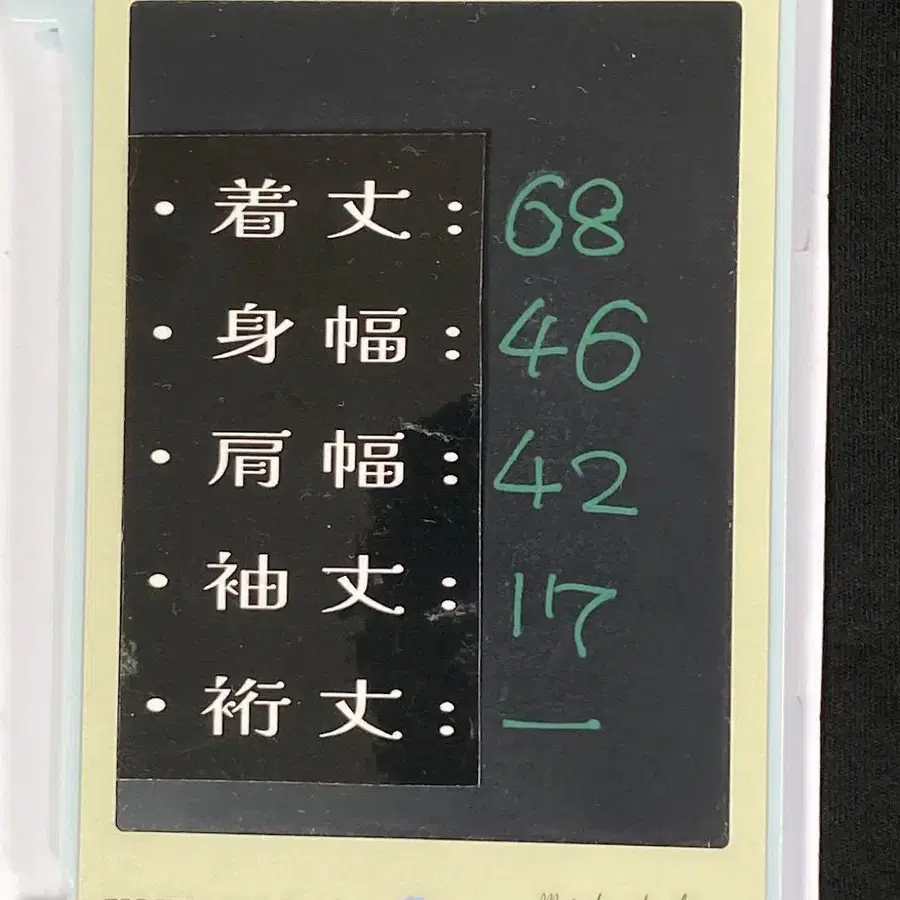 ・着丈：68
・身幅：46
・肩幅：42
・袖丈：17
・裄丈：ー